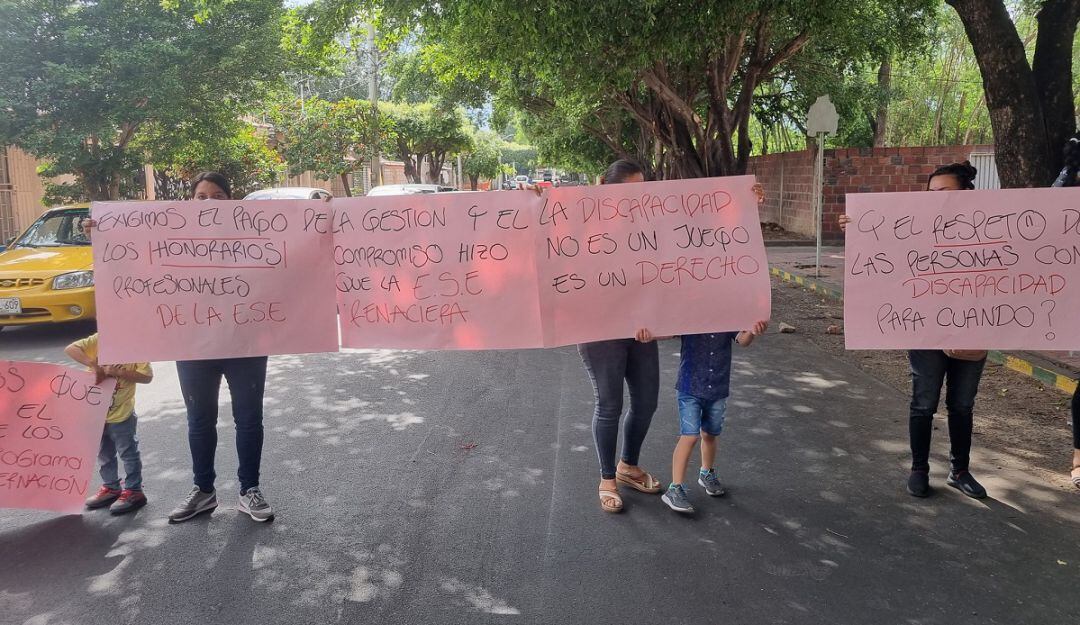 EXIGIMOS EL PAGO DE
LOS HONORARIOS
PROFESIONALES
DE LA E.S.E
LA GESTION Y EL
COMPROMISO HIZO
QUE LA E.S.E
RENACIERA
LA DISCAPACIDAD
NO ES UN JUEGO
ES UN DERECHO
Y EL RESPETO DE
LAS PERSONAS CON
DISCAPACIDAD
PARA CUANDO?
QUE
EL
LOS
609